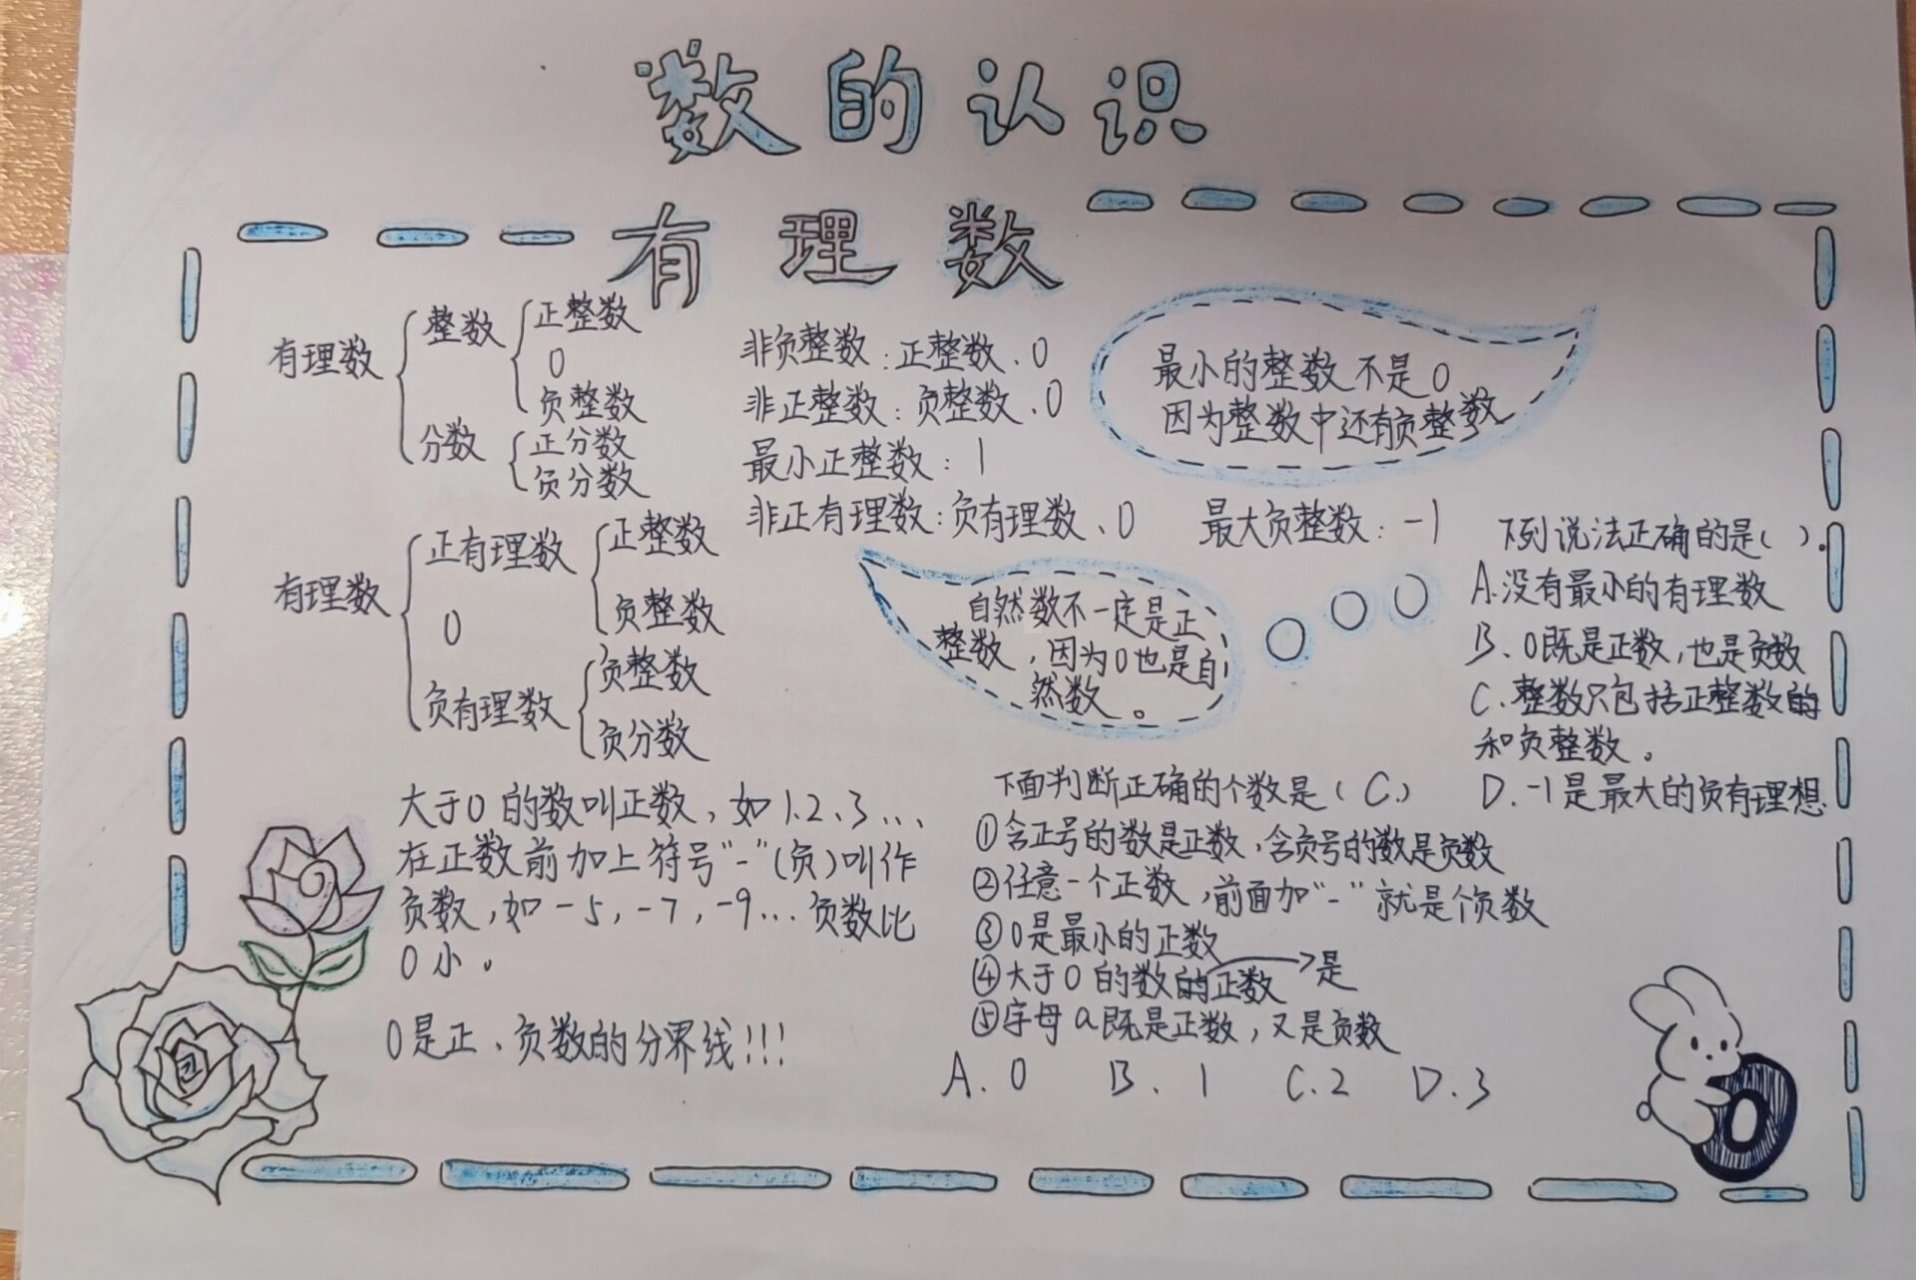 数的认识
有理数
有理数
整数
正整数
0
负整数
分数
正分数
负分数
有理数
正有理数
正整数
负整数
0
负有理数
负整数
负分数
非负整数:正整数、0
非正整数:负整数、0
最小正整数:1
非正有理数:负有理数、0
最大负整数:-1
最小的整数不是0
因为整数中还有负整数
自然数不一定是正
整数,因为0也是自
然数。
下列说法正确的是( ).
A.没有最小的有理数
B.0既是正数,也是负数
C.整数只包括正整数的
和负整数。
D.-1是最大的负有理想
大于0的数叫正数,如1.2、3...
在正数前加上符号"-"(负)叫作
负数,如-5,-7,-9...负数比
0小。
0是正、负数的分界线!!!
下面判断正确的个数是(C.)
①含正号的数是正数,含负号的数是负数
②任意一个正数,前面加"-"就是个负数
③0是最小的正数
④大于0的数的正数→是
⑤字母a既是正数,又是负数
A.0 B.1 C.2 D.3